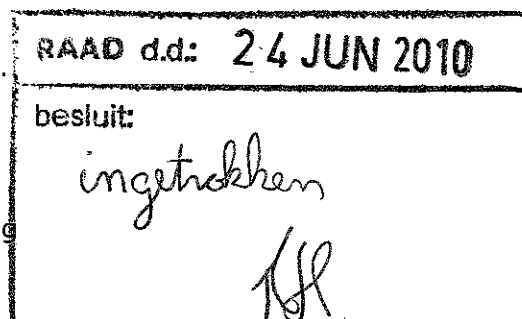 RAAD d.d.: 24 JUN 2010
besluit:
ingetrokken